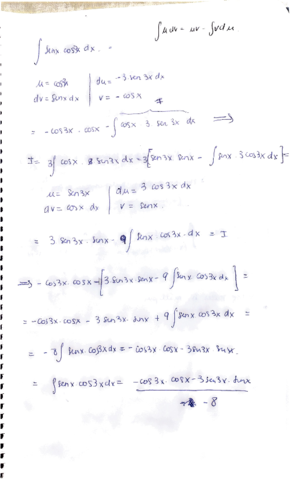 ∫u dv = uv - ∫v du
∫ senx cos3x dx.
u = cos3x | du = -3 sen 3x dx
dv = senx dx | v = -cosx
= -cos3x · cosx - ∫ cosx 3 sen 3x dx ⟹
I = 3∫ cosx sen3x dx = 3[sen3x senx - ∫ senx · 3 cos3x dx] =
u = sen3x | du = 3 cos3x dx
dv = cosx dx | v = senx.
= 3 sen3x · senx - 9∫ senx · cos3x · dx = I
⟹ -cos3x · cosx - [3 sen3x senx - 9∫ senx cos3x dx] =
= -cos3x · cosx - 3 sen3x · senx + 9∫ senx cos3x dx =
= -8∫ senx cos3x dx = -cos3x cosx - 3 sen3x senx.
= ∫ senx cos3x dx = -cos3x · cosx - 3 sen3x · senx
-8